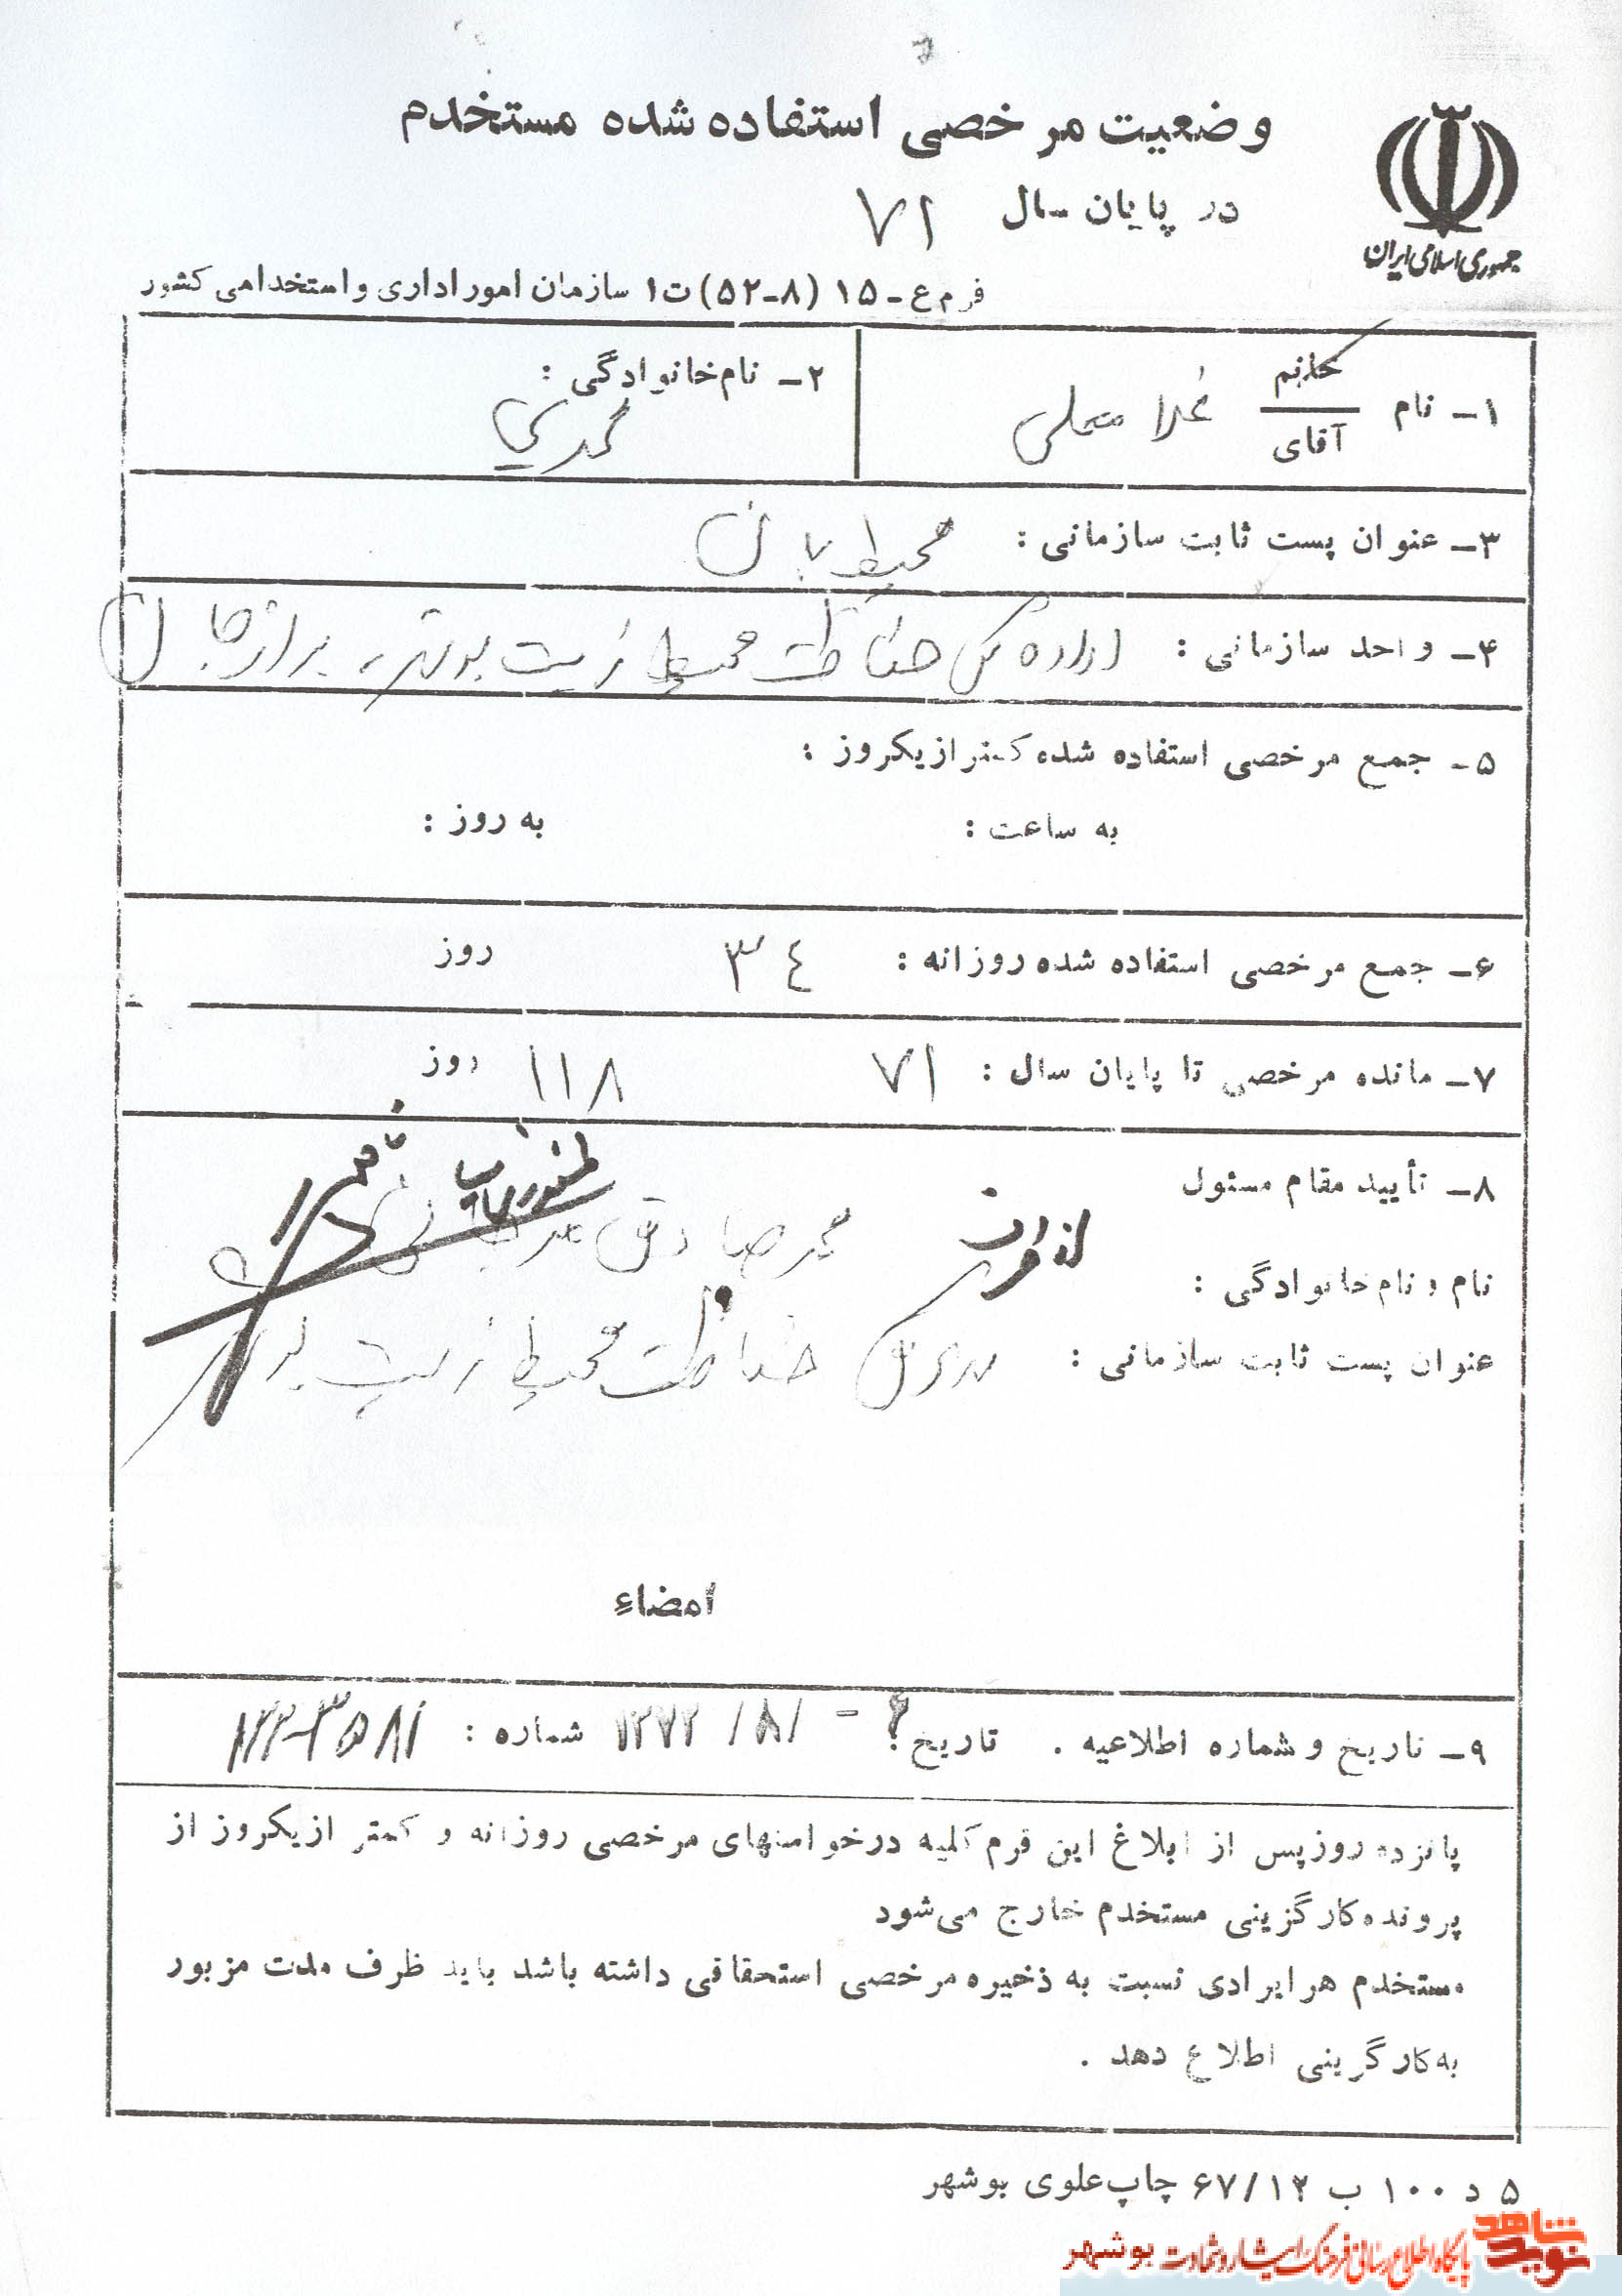 وضعیت مرخصی استفاده شده مستخدم
در پایان سال ۷۱
جمهوری اسلامی ایران
فرم ع-۱۵ (۸-۵۲) ت۱ سازمان امور اداری و استخدامی کشور
۱- نام خانم آقای غلامعلی
۲- نام خانوادگی : محمدی
۳- عنوان پست ثابت سازمانی : محیط بان
۴- واحد سازمانی : اداره کل حفاظت محیط زیست بوشهر، برازجان
۵- جمع مرخصی استفاده شده کمتر از یکروز :
به ساعت : به روز :
۶- جمع مرخصی استفاده شده روزانه : ۳۴ روز
۷- مانده مرخصی تا پایان سال : ۷۱ ۱۱۸ روز
۸- تأیید مقام مسئول
نام و نام خانوادگی : محمد صادق
عنوان پست ثابت سازمانی : مدیر کل حفاظت محیط زیست
امضاء
۹- تاریخ و شماره اطلاعیه . تاریخ : شماره :
پانزده روز پس از ابلاغ این فرم کلیه درخواستهای مرخصی روزانه و کمتر از یکروز از
پرونده کارگزینی مستخدم خارج می‌شود
مستخدم هر ایرادی نسبت به ذخیره مرخصی استحقاقی داشته باشد باید ظرف مدت مزبور
به کارگزینی اطلاع دهد .
۵ د ۱۰۰ ب ۶۷/۱۲ چاپ علوی بوشهر
نوید شاهد
پایگاه اطلاع رسانی فرهنگ ایثار و شهادت بوشهر